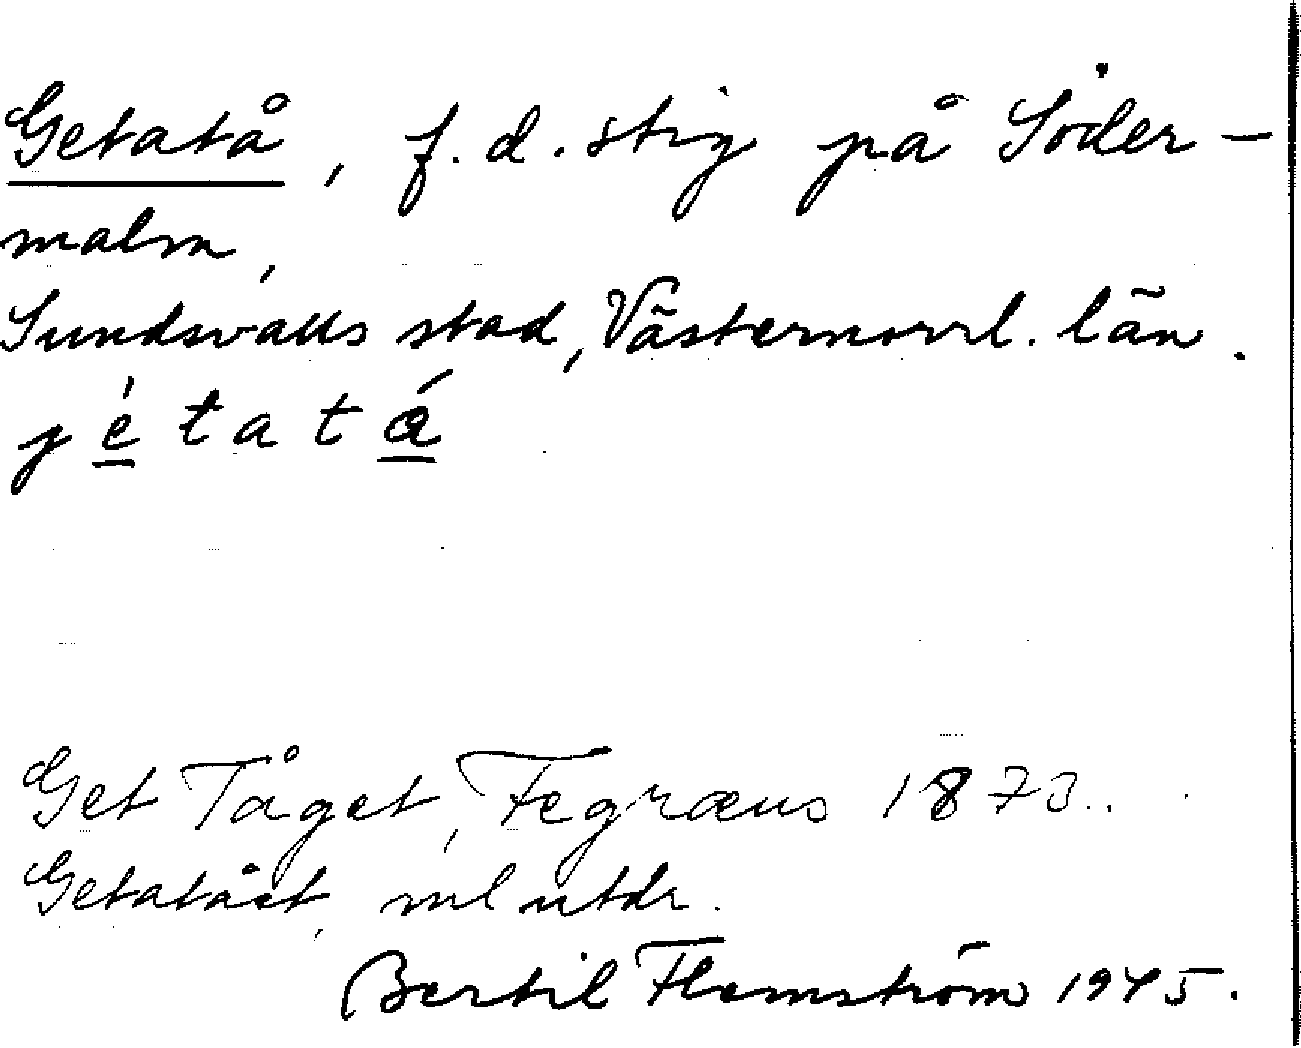 Getatå, f.d. stig på Söder-
malm,
Sundsvalls stad, Västernorrl. län.
jétatá
Get Tåget, Fegræus 1873..
Getatået, ml utdr.
Bertil Flemström 1945.